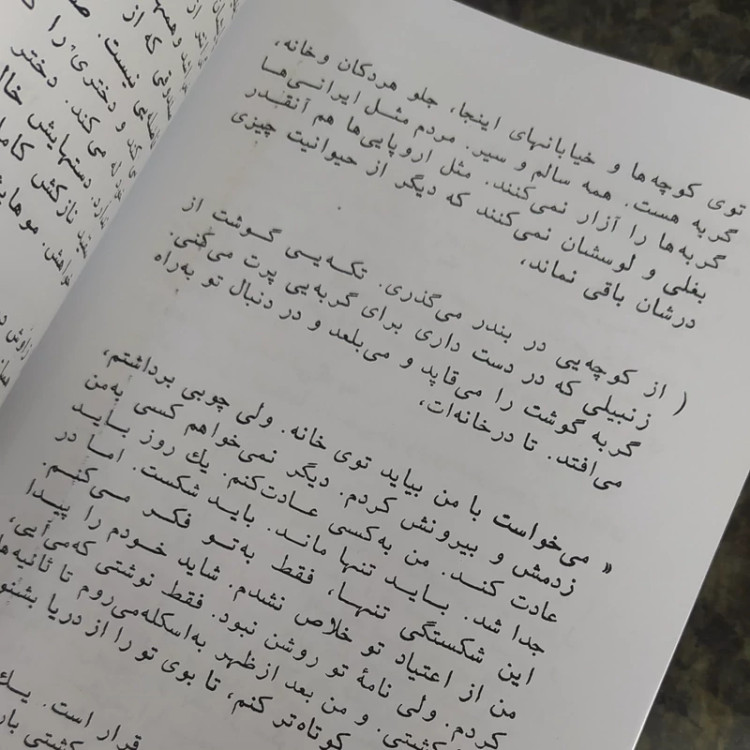 توی کوچه‌ها و خیابانهای اینجا، جلو هردکان وخانه،
گربه هست. همه سالم و سیر. مردم مثل ایرانی‌ها
گربه‌ها را آزار نمی‌کنند. مثل اروپایی‌ها هم آنقدر
بغلی و لوسشان نمی‌کنند که دیگر از حیوانیت چیزی
درشان باقی نماند،
( از کوچه‌یی در بندر می‌گذری. تکه‌یی گوشت از
زنبیلی که در دست داری برای گربه‌یی پرت می‌کنی.
گربه گوشت را می‌قاپد و می‌بلعد و در دنبال تو به‌راه
می‌افتد. تا درخانه‌ات،
« می‌خواست با من بیاید توی خانه. ولی چوبی برداشتم،
زدمش و بیرونش کردم. دیگر نمی‌خواهم کسی به‌من
عادت کند. من به‌کسی عادت‌کنم. یك روز باید
جدا شد. باید تنها ماند. باید شکست. اما در
این شکستگی تنها، فقط به‌تو فکر می‌کنم.
من از اعتیاد تو خلاص نشدم. شاید خودم را پیدا
کردم. ولی نامهٔ تو روشن نبود. فقط نوشتی که‌می‌آیی،
کشتی. و من بعد ازظهر به‌اسکله‌می‌روم تا ثانیه‌ها
کوتاه‌تر کنم، تا بوی تو را از دریا بشنو
قرار است. یك